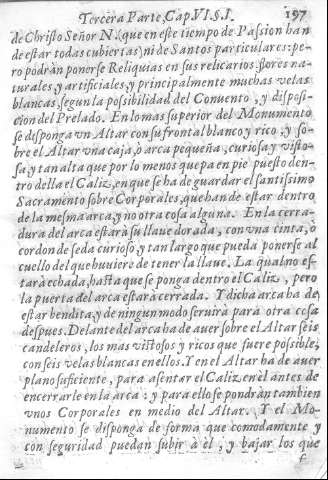 Tercera Parte, Cap. VI. §. I. 197
de Christo Señor N. que en este tiempo de Passion han
de estar todas cubiertas; ni de Santos particulares: pe-
ro podràn ponerse Reliquias en sus relicarios: flores na-
turales y artificiales, y principalmente muchas velas
blancas, segun la possibilidad del Conuento, y disposi-
cion del Prelado. En lo mas superior del Monumento
se disponga vn Altar con su frontal blanco y rico, y so-
bre el Altar vna caja, ò arca pequeña, curiosa y visto-
sa, y tan alta que por lo menos quepa en pie puesto den-
tro della el Caliz, en que se ha de guardar el santissimo
Sacramento sobre Corporales, que han de estar dentro
de la mesma arca, y no otra cosa alguna. En la cerra-
dura del arca estarà su llaue dorada, con vna cinta, ò
cordon de seda curioso, y tan largo que pueda ponerse al
cuello del que huuiere de tener la llaue. La qual no es-
tarà echada, hasta que se ponga dentro el Caliz, pero
la puerta del arca estarà cerrada. Y dicha arca ha de
estar bendita, y de ningun modo seruirà para otra cosa
despues. Delante del arca ha de auer sobre el Altar seis
candeleros, los mas vistosos y ricos que fuere possible,
con seis velas blancas en ellos. Y en el Altar ha de auer
plano suficiente, para assentar el Caliz en èl antes de
encerrarle en la arca: y para ello se pondràn tambien
vnos Corporales en medio del Altar. Y el Mo-
numento se disponga de forma que comodamente y
con seguridad puedan subir à èl, y bajar los que